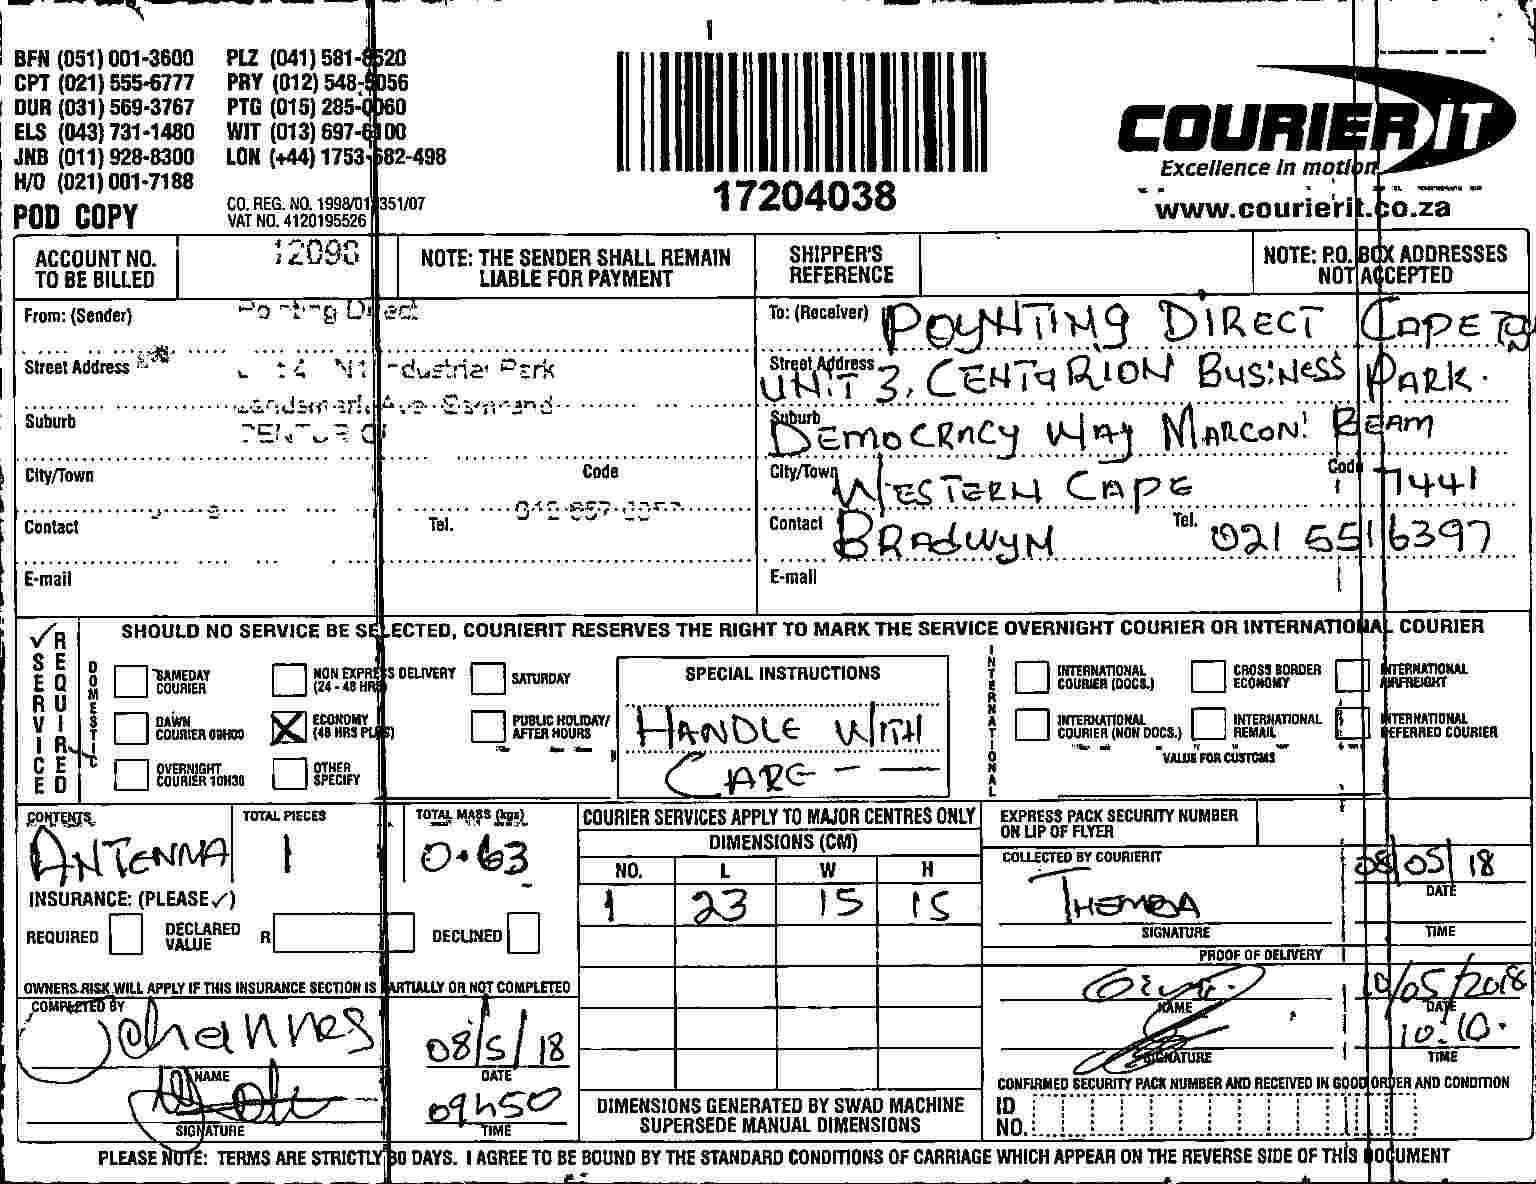 BFN (051) 001-3600 PLZ (041) 581-8520
CPT (021) 555-6777 PRY (012) 548-5056
DUR (031) 569-3767 PTG (015) 285-0060
ELS (043) 731-1480 WIT (013) 697-6100
JNB (011) 928-8300 LON (+44) 1753-682-498
H/O (021) 001-7188
POD COPY
CO. REG. NO. 1998/01 351/07
VAT NO. 4120195526
17204038
COURIER IT
Excellence in motion
www.courierit.co.za
ACCOUNT NO. TO BE BILLED
12098
NOTE: THE SENDER SHALL REMAIN LIABLE FOR PAYMENT
SHIPPER'S REFERENCE
NOTE: P.O. BOX ADDRESSES NOT ACCEPTED
From: (Sender) Direct
Street Address Industrial Park
Suburb
City/Town Code
Contact Tel.
E-mail
To: (Receiver) POYNTING DIRECT CAPE
Street Address UNIT 3, CENTURION BUSINESS PARK.
Suburb DEMOCRACY WAY MARCONI BEAM
City/Town WESTERN CAPE Code 7441
Contact BRADWYN Tel. 021 551 6397
E-mail
SERVICE REQUIRED
SHOULD NO SERVICE BE SELECTED, COURIERIT RESERVES THE RIGHT TO MARK THE SERVICE OVERNIGHT COURIER OR INTERNATIONAL COURIER
DOMESTIC
SAMEDAY COURIER
NON EXPRESS DELIVERY (24 - 48 HRS)
SATURDAY
DAWN COURIER 09H00
ECONOMY (48 HRS PLUS)
PUBLIC HOLIDAY/ AFTER HOURS
OVERNIGHT COURIER 10H30
OTHER SPECIFY
SPECIAL INSTRUCTIONS
HANDLE WITH
CARE
INTERNATIONAL
INTERNATIONAL COURIER (DOCS.)
CROSS BORDER ECONOMY
INTERNATIONAL AIRFREIGHT
INTERNATIONAL COURIER (NON DOCS.)
INTERNATIONAL REMAIL
INTERNATIONAL DEFERRED COURIER
VALUE FOR CUSTOMS
CONTENTS
ANTENNA
TOTAL PIECES
1
TOTAL MASS (kgs)
0.63
INSURANCE: (PLEASE ✓)
REQUIRED DECLARED VALUE R DECLINED
OWNERS RISK WILL APPLY IF THIS INSURANCE SECTION IS PARTIALLY OR NOT COMPLETED
COMPLETED BY
Johannes
NAME
08/5/18
DATE
SIGNATURE
09h50
TIME
COURIER SERVICES APPLY TO MAJOR CENTRES ONLY
DIMENSIONS (CM)
NO. L W H
1 23 15 15
DIMENSIONS GENERATED BY SWAD MACHINE
SUPERSEDE MANUAL DIMENSIONS
EXPRESS PACK SECURITY NUMBER ON LIP OF FLYER
COLLECTED BY COURIERIT
THEMBA
SIGNATURE
08/05/18
DATE
TIME
PROOF OF DELIVERY
NAME
10/05/2018
DATE
SIGNATURE
10:10.
TIME
CONFIRMED SECURITY PACK NUMBER AND RECEIVED IN GOOD ORDER AND CONDITION
ID NO.
PLEASE NOTE: TERMS ARE STRICTLY 30 DAYS. I AGREE TO BE BOUND BY THE STANDARD CONDITIONS OF CARRIAGE WHICH APPEAR ON THE REVERSE SIDE OF THIS DOCUMENT